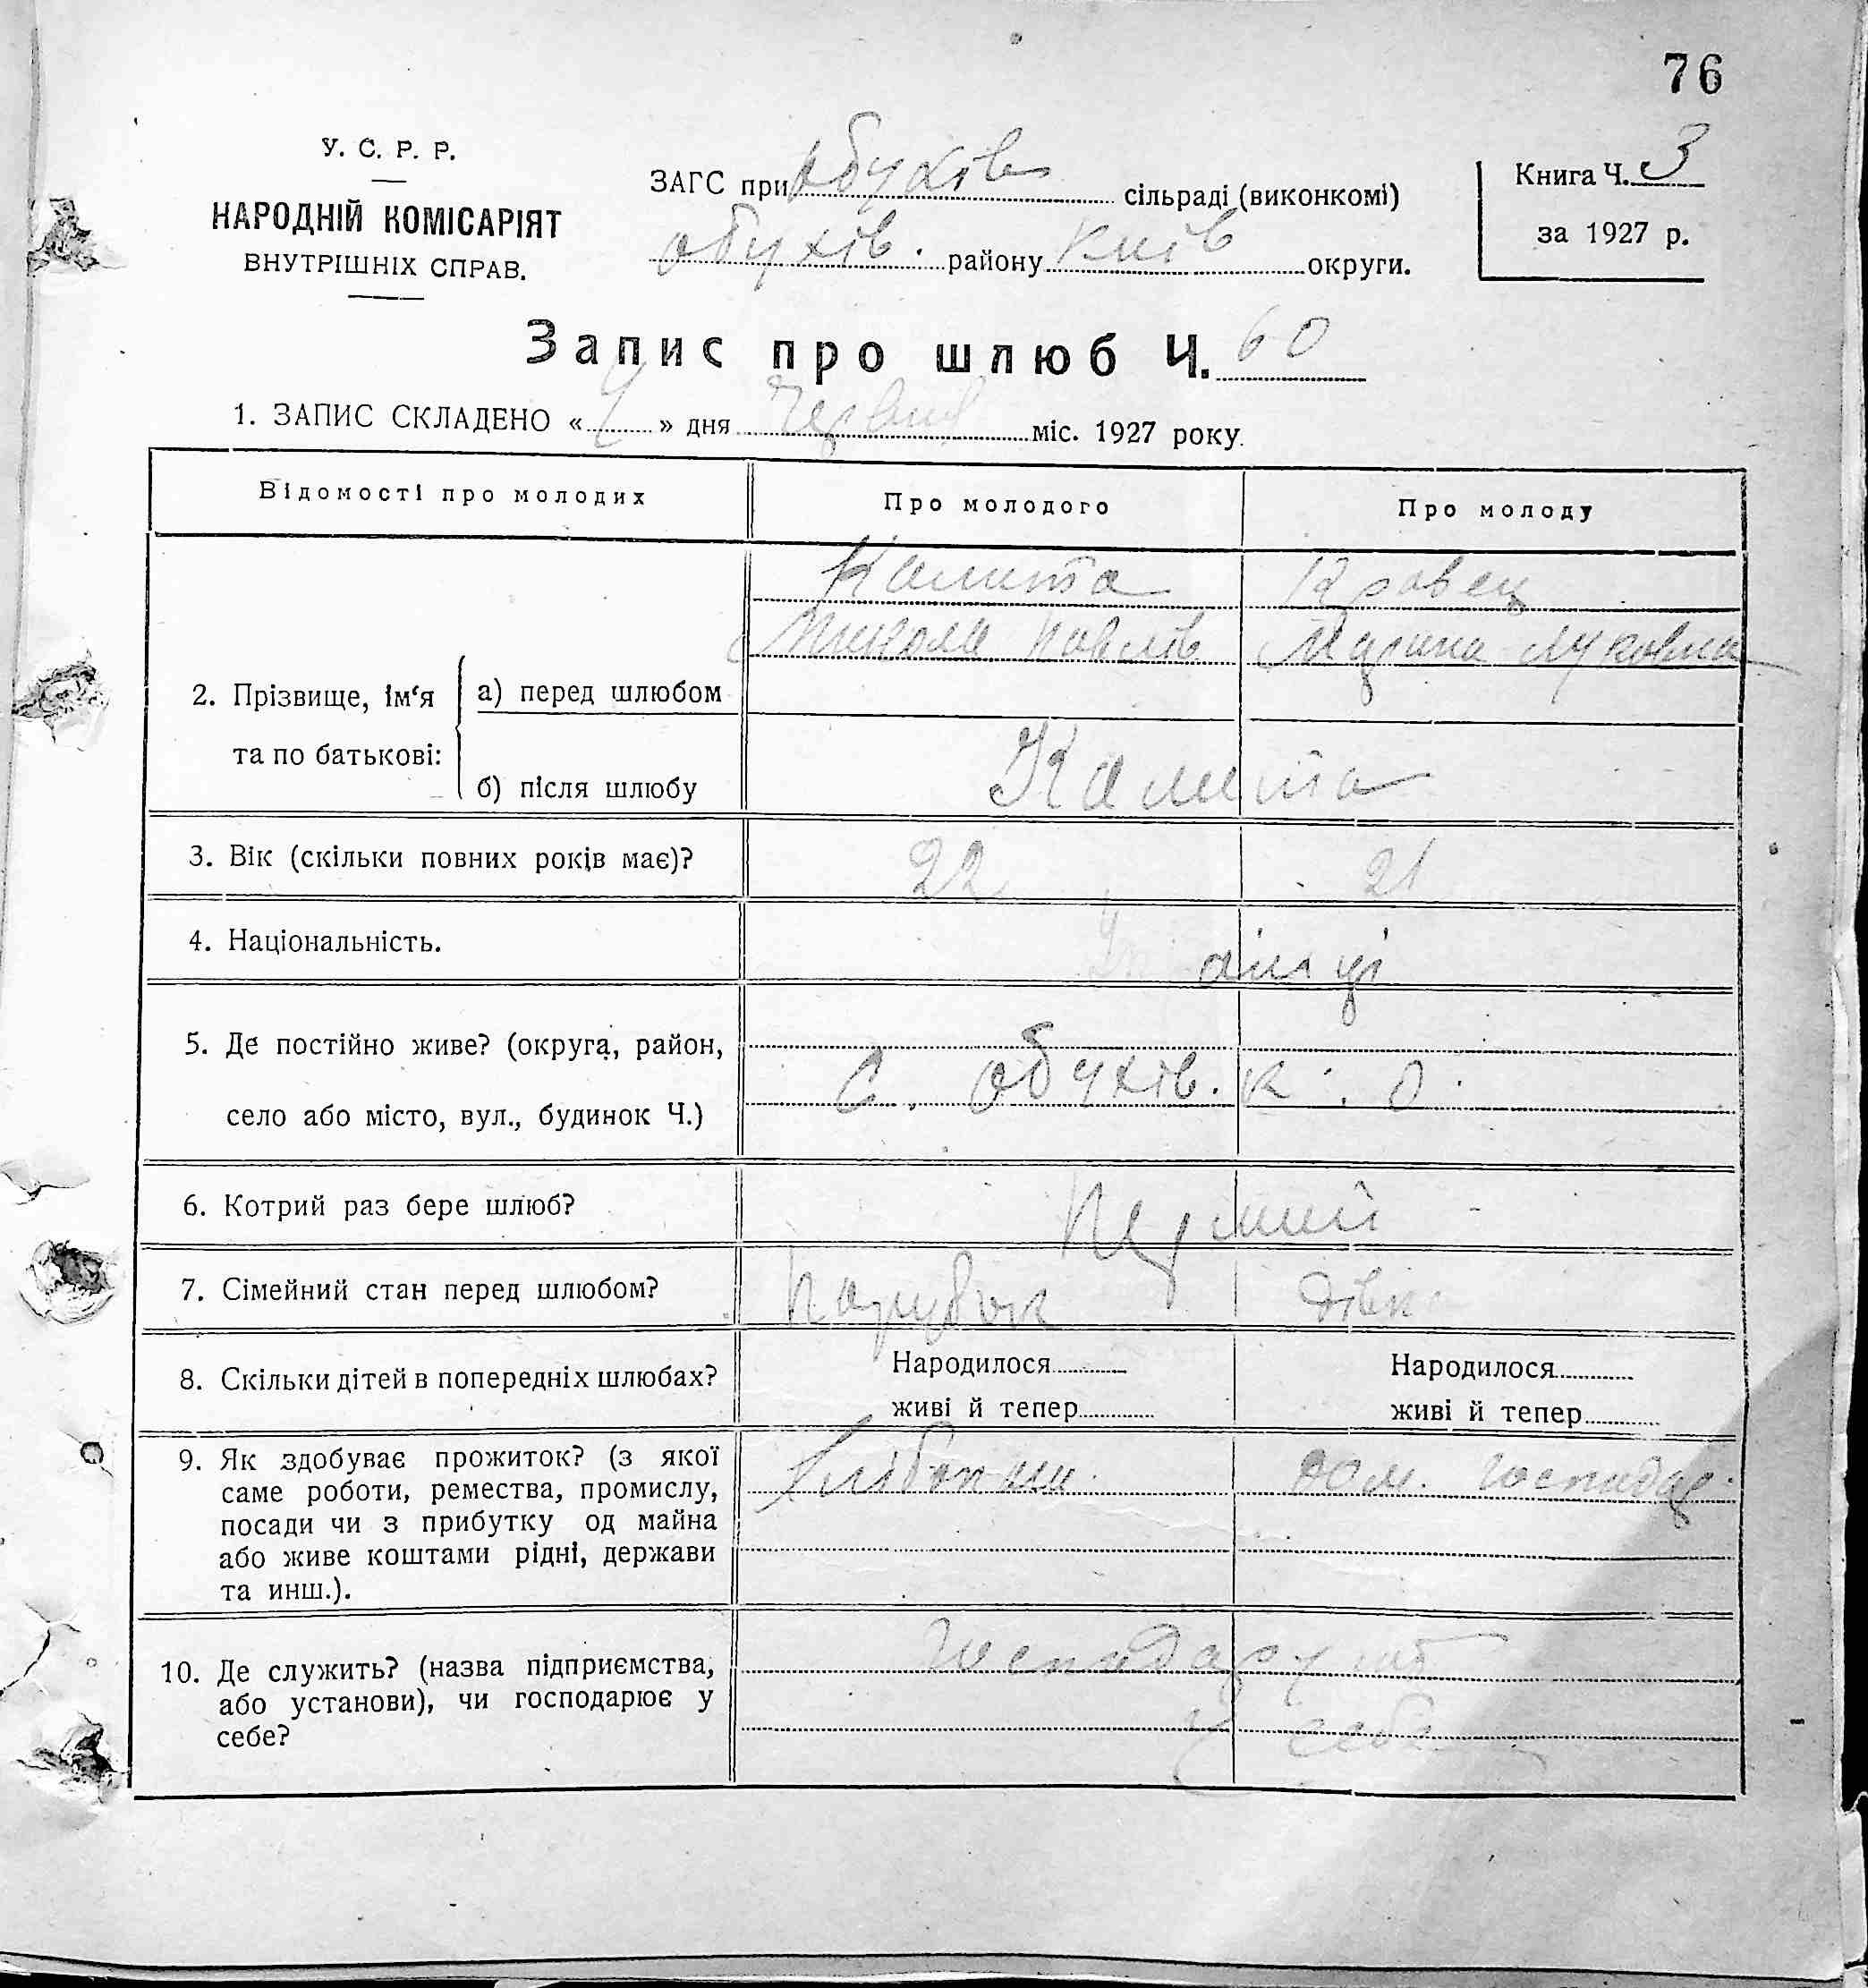 76
У. С. Р. Р.
НАРОДНІЙ КОМІСАРІЯТ
ВНУТРІШНІХ СПРАВ.
ЗАГС при Обухів сільраді (виконкомі)
Обухів. району Київ округи.
Книга Ч. 3
за 1927 р.
Запис про шлюб Ч. 60
1. ЗАПИС СКЛАДЕНО « » дня Червня міс. 1927 року.
Відомості про молодих Про молодого Про молоду
2. Прізвище, ім‘я та по батькові:
а) перед шлюбом
Калита Кравец
Микола Павлів Луковна
б) після шлюбу
Калита
3. Вік (скільки повних років має)? 22 21
4. Національність.
5. Де постійно живе? (округа, район,
село або місто, вул., будинок Ч.)
С. Обухів. К. О.
6. Котрий раз бере шлюб? Перший
7. Сімейний стан перед шлюбом? Парубок Дівка
8. Скільки дітей в попередніх шлюбах? Народилося Народилося
живі й тепер живі й тепер
9. Як здобуває прожиток? (з якої дом. господар.
саме роботи, ремества, промислу,
посади чи з прибутку од майна
або живе коштами рідні, держави
та инш.).
10. Де служить? (назва підприємства,
або установи), чи господарює у
себе?
Господарують
у себе